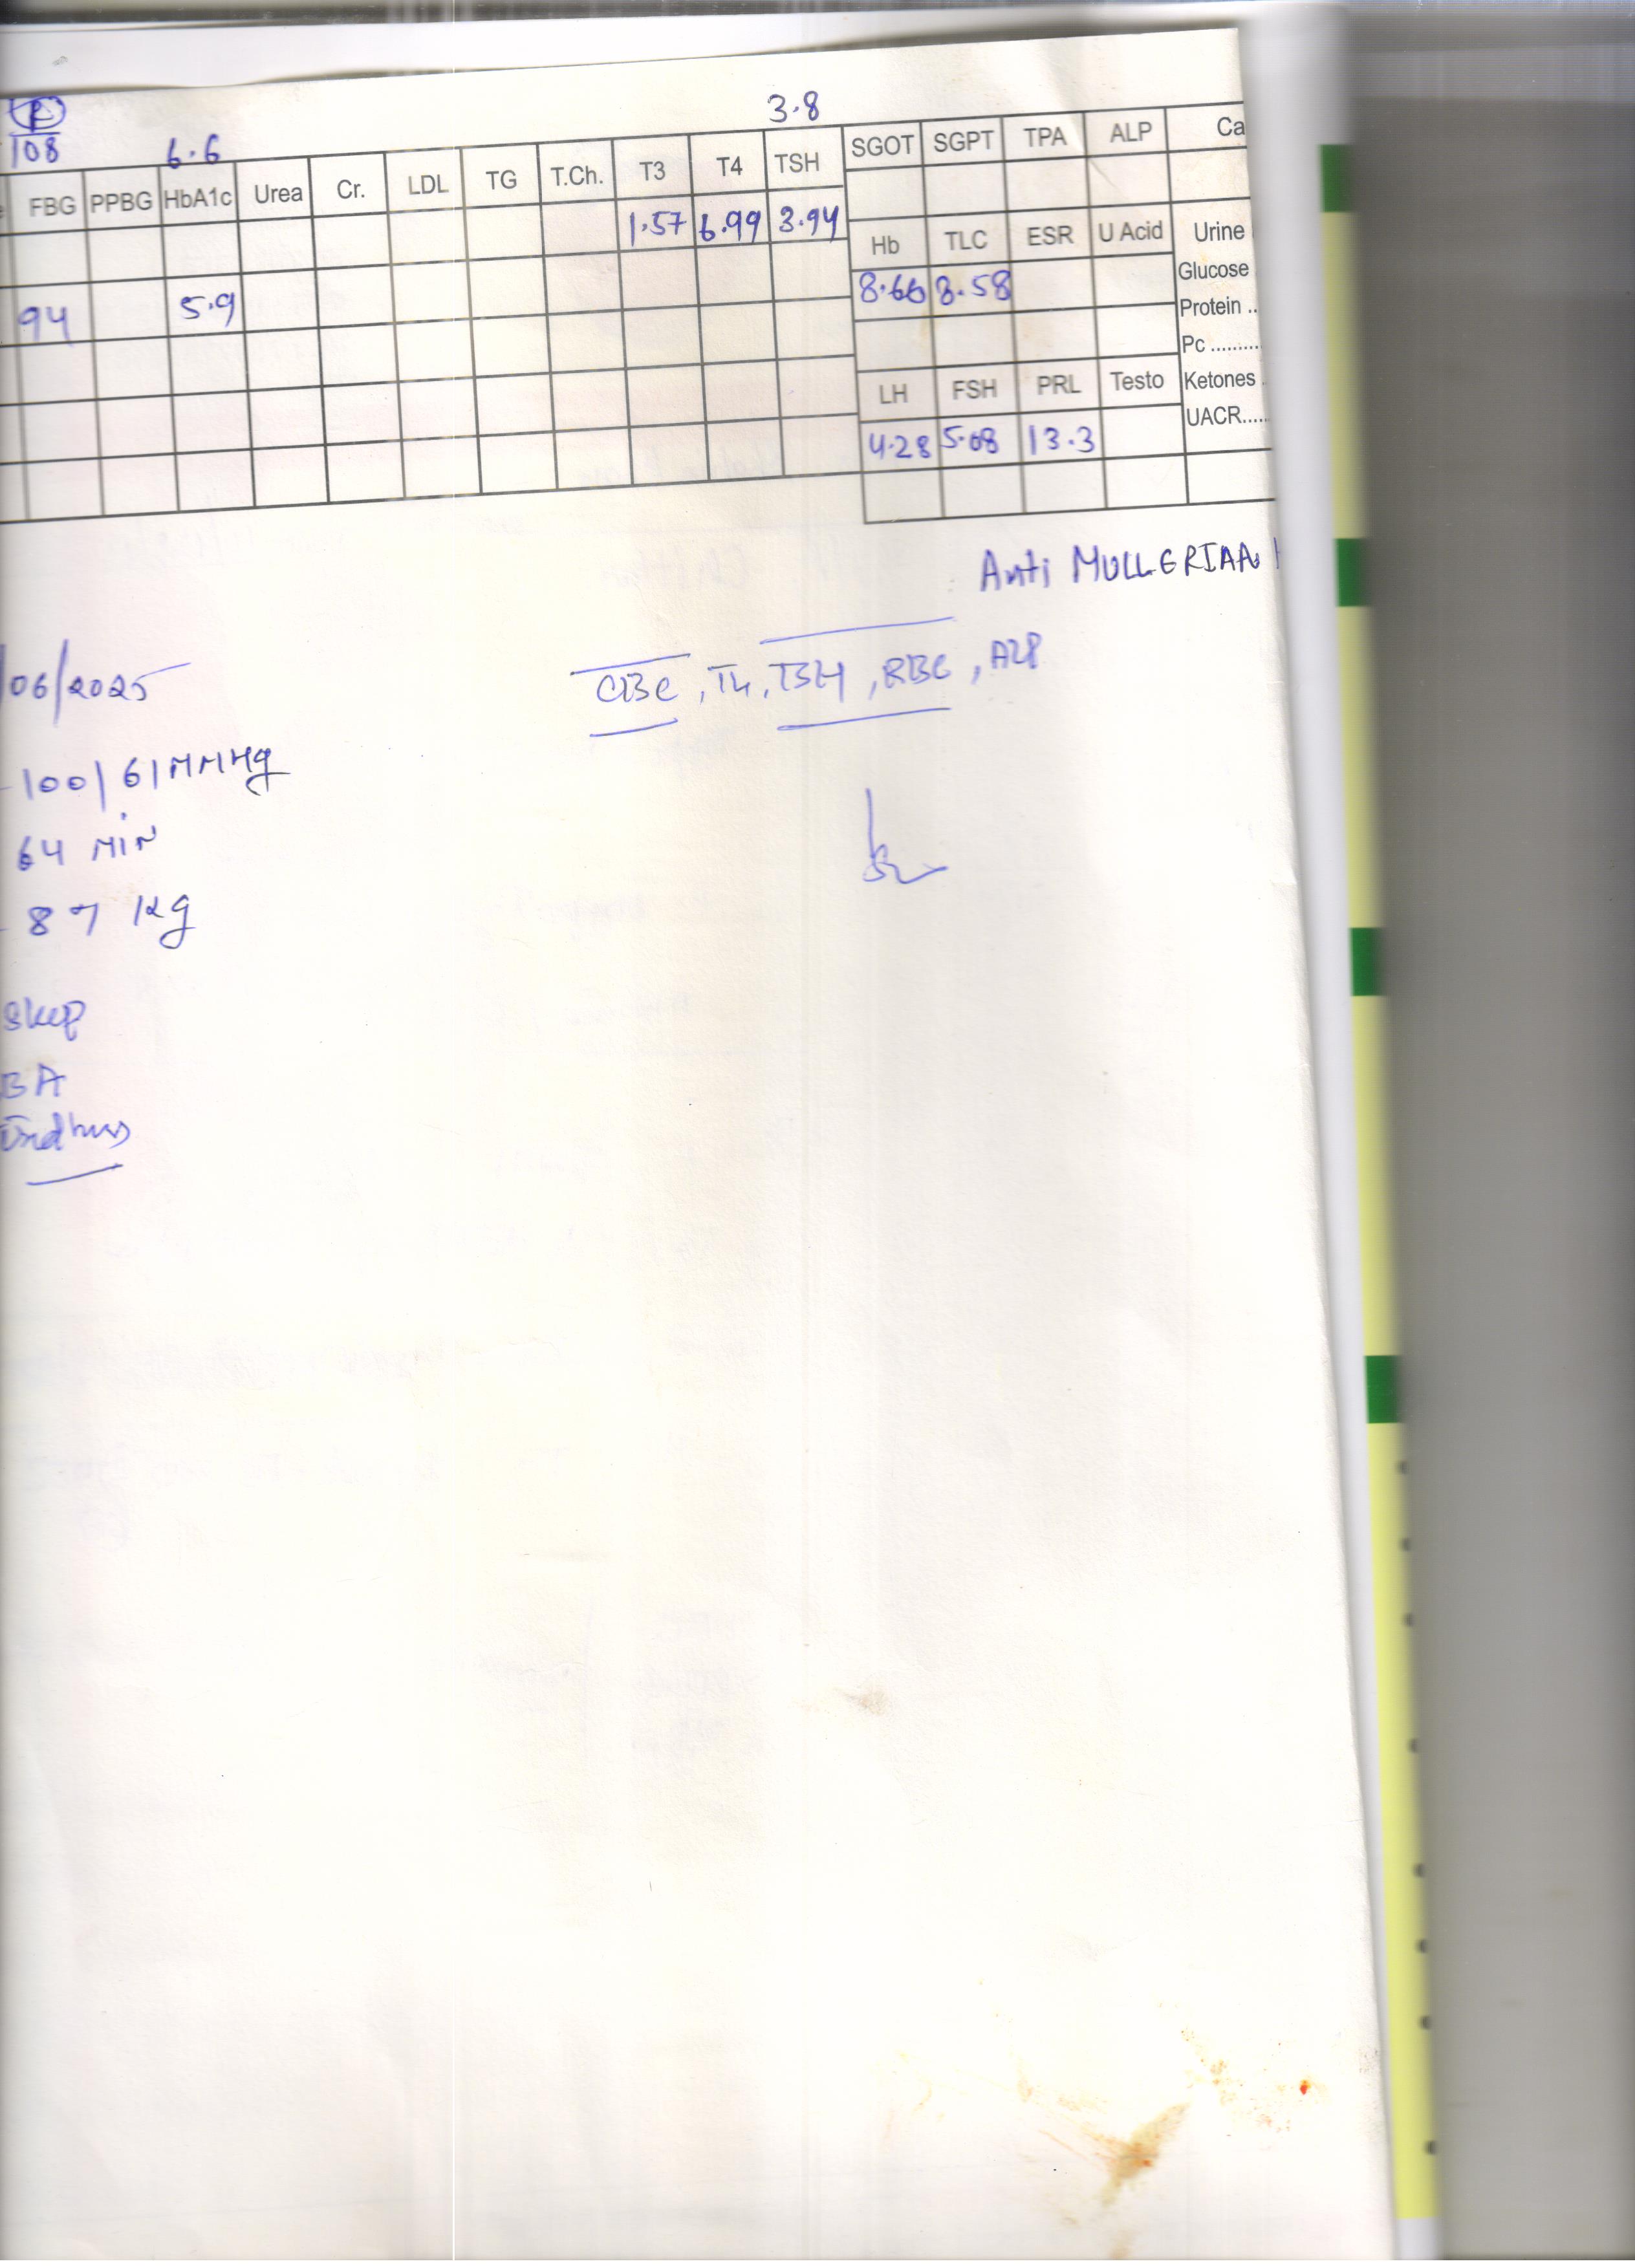 R
108 6.6 3.8
FBG PPBG HbA1c Urea Cr. LDL TG T.Ch. T3 T4 TSH SGOT SGPT TPA ALP Ca
1.57 6.99 3.94
Hb TLC ESR U Acid Urine
8.66 8.58 Glucose
94 5.9 Protein ..
Pc .........
LH FSH PRL Testo Ketones .
4.28 5.08 13.3 UACR.....
Anti MULLERIAN
06/2025 CBC, T4, TSH, RBC,
100/61 MMHg
64 MIN
87 Kg
BA